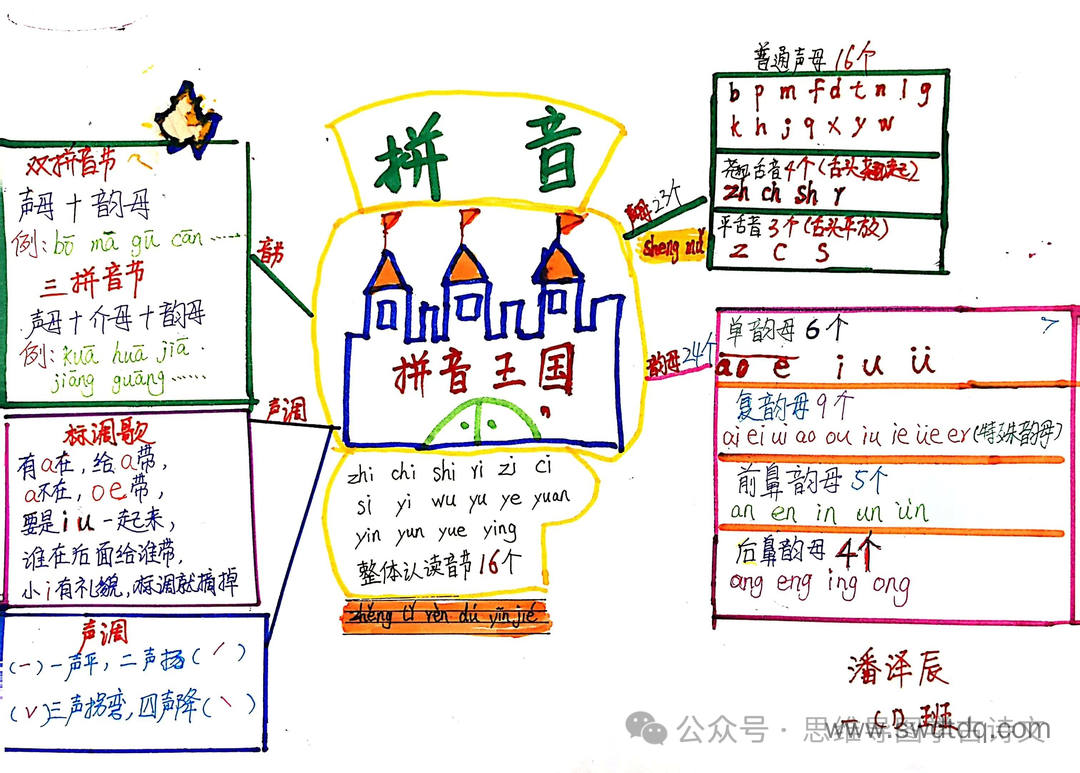 拼音
拼音王国
zhi chi shi ri zi ci
si yi wu yu ye yuan
yin yun yue ying
整体认读音节16个
zhěng tǐ rèn dú yīn jié
音节
双拼音节
声母+韵母
例:bō mā gū cān……
三拼音节
声母+介母+韵母
例:kuā huā jiā
jiāng guāng……
声调
标调歌
有a在,给a带,
a不在,oe带,
要是iu一起来,
谁在后面给谁带,
小i有礼貌,标调就摘掉
声调
(一)一声平,二声扬(ˊ)
(ˇ)三声拐弯,四声降(ˋ)
声母23个
sheng mǔ
普通声母16个
b p m f d t n l g
k h j q x y w
翘舌音4个(舌头翘起)
zh ch sh r
平舌音3个(舌头平放)
z c s
韵母24个
单韵母6个
a o e i u ü
复韵母9个
ai ei ui ao ou iu ie üe er(特殊韵母)
前鼻韵母5个
an en in un ün
后鼻韵母4个
ang eng ing ong
潘泽辰
一(D班
公众号·思维导图学古诗文
www.swdtdq.com